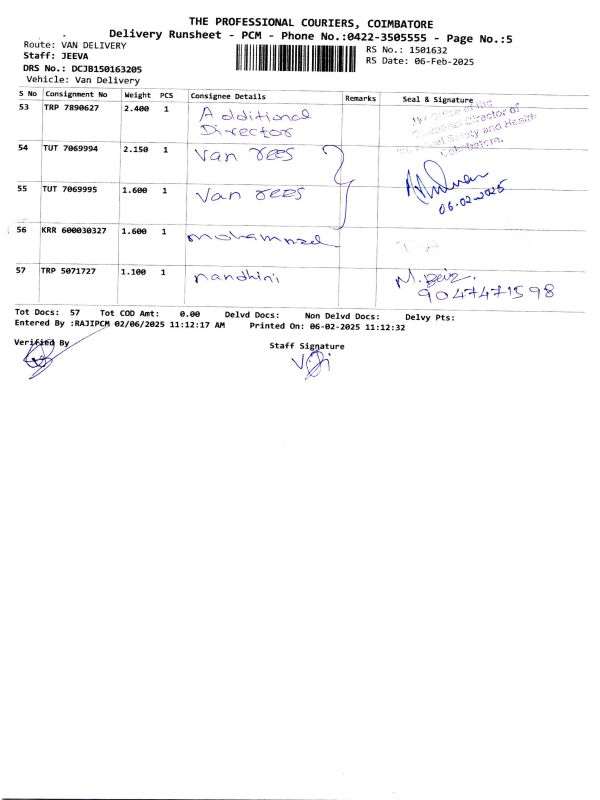 THE PROFESSIONAL COURIERS, COIMBATORE
Delivery Runsheet - PCM - Phone No.:0422-3505555 - Page No.:5
Route: VAN DELIVERY RS No.: 1501632
Staff: JEEVA RS Date: 06-Feb-2025
DRS No.: DCJB150163205
Vehicle: Van Delivery
S No Consignment No Weight PCS Consignee Details Remarks Seal & Signature
53 TRP 7890627 2.400 1 Additional
Director
Director of
Safety and Health
Coimbatore.
54 TUT 7069994 2.150 1 Van rees
55 TUT 7069995 1.600 1 Van rees
06-02-2025
56 KRR 600030327 1.600 1 mohammed
57 TRP 5071727 1.100 1 nandhini
9047471598
Tot Docs: 57 Tot COD Amt: 0.00 Delvd Docs: Non Delvd Docs: Delvy Pts:
Entered By :RAJIPCM 02/06/2025 11:12:17 AM Printed On: 06-02-2025 11:12:32
Verified By Staff Signature